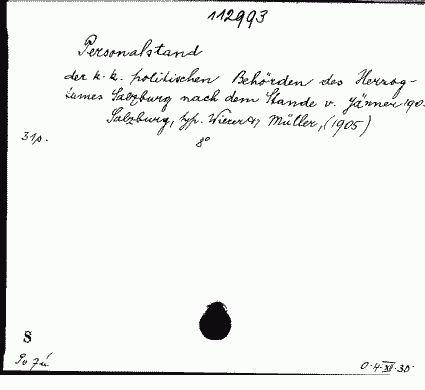 112993
Personalstand
der k. k. politischen Behörden des Herzog-
tumes Salzburg nach dem Stande v. Jänner 190
Salzburg, typ. Wieser & Müller, (1905)
31p. 8°
S
O·4·XII·30·